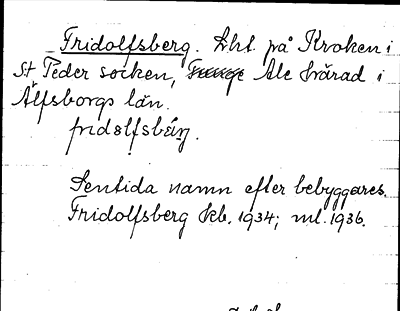 Fridolfsberg. Lht. på Kroken i
St Peder socken, Ale härad i
Älfsborgs län.
fridålfsbärj.
Sentida namn efter bebyggares.
Fridolfsberg kb. 1934; ml. 1936.